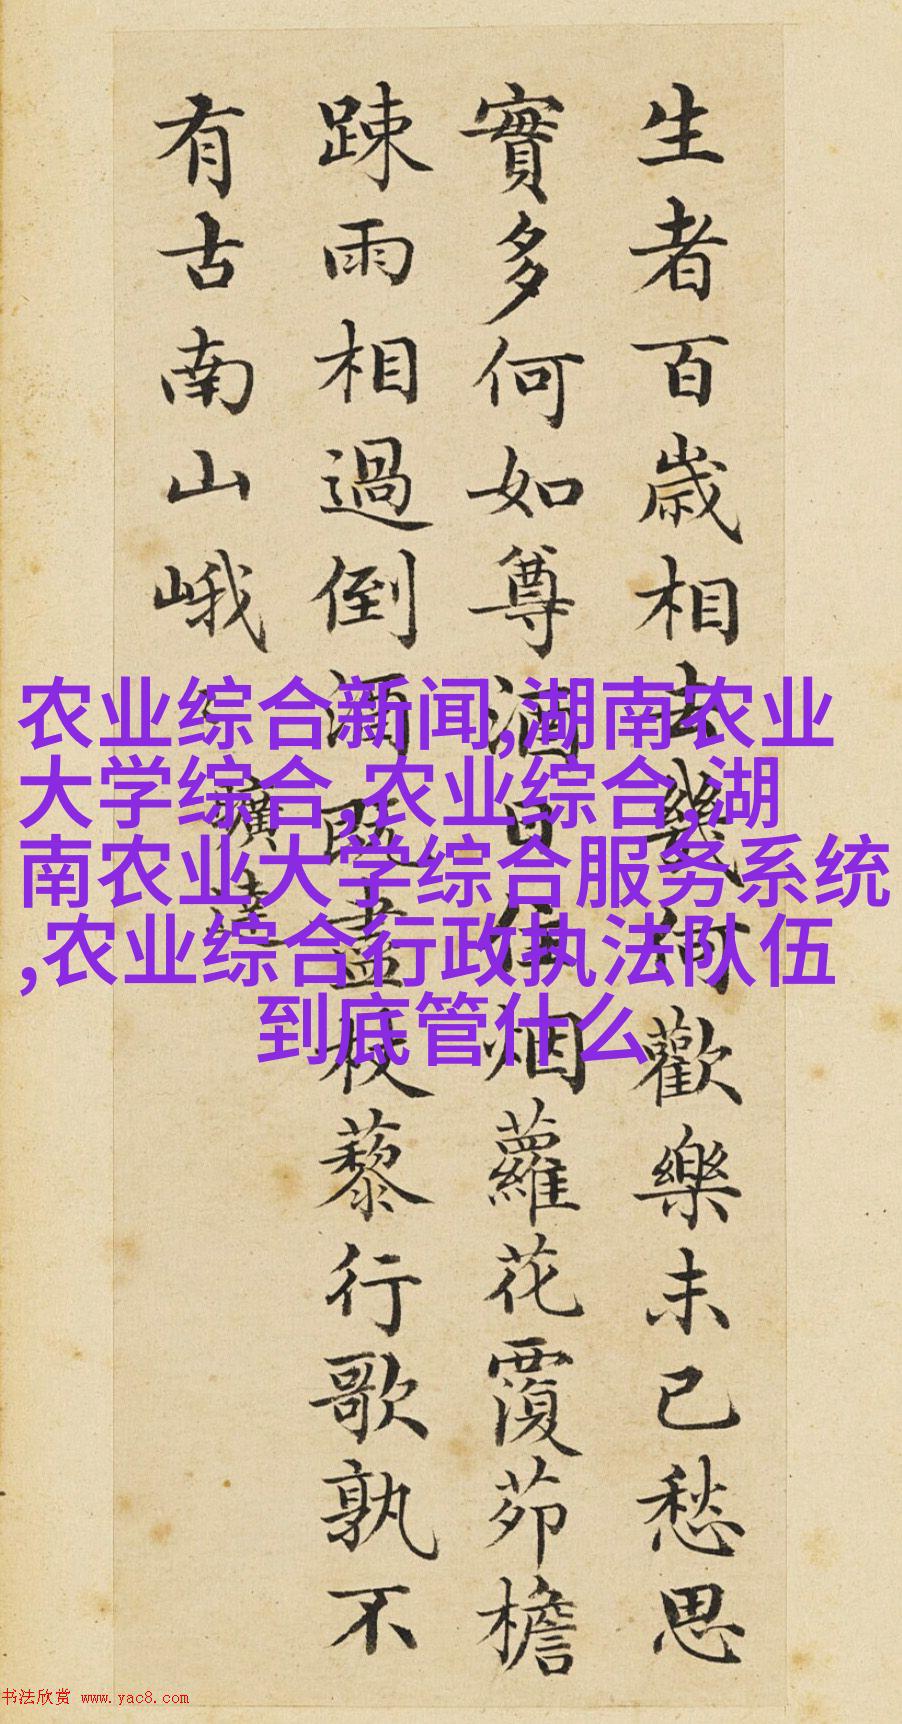 生者百歲相去幾何歡樂未已愁思
實多何如尊酒日往烟蘿花覆茆檐
踈雨相過倒酒既盡杖藜行歌孰不
有古南山峨〻
曠達
农业综合新闻,湖南农业
大学综合,农业综合,湖
南农业大学综合服务系统
,农业综合行政执法队伍
到底管什么
书法欣赏 www.yac8.com